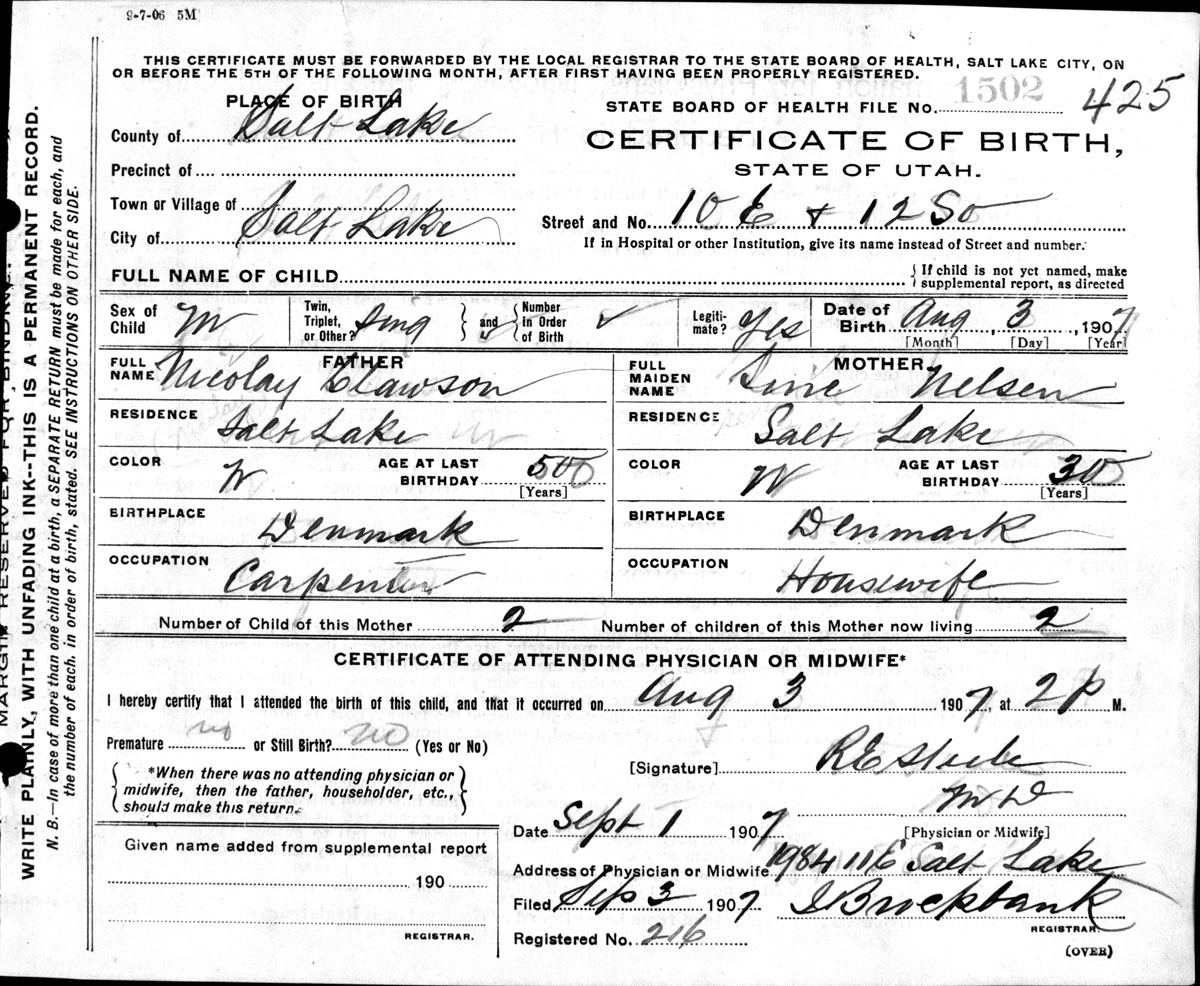 9-7-06 5M
THIS CERTIFICATE MUST BE FORWARDED BY THE LOCAL REGISTRAR TO THE STATE BOARD OF HEALTH, SALT LAKE CITY, ON
OR BEFORE THE 5TH OF THE FOLLOWING MONTH, AFTER FIRST HAVING BEEN PROPERLY REGISTERED.
PLACE OF BIRTH
STATE BOARD OF HEALTH FILE No. 1502 425
County of Salt Lake
CERTIFICATE OF BIRTH,
STATE OF UTAH.
Precinct of
Town or Village of
City of Salt Lake
Street and No. 10 E + 12 So
If in Hospital or other Institution, give its name instead of Street and number.
FULL NAME OF CHILD
{ If child is not yet named, make
supplemental report, as directed
Sex of Child M
Twin, Triplet, or Other? Sing } and { Number in Order of Birth ✓
Legiti-mate? Yes
Date of Birth Aug 3, 1907
[Month] [Day] [Year]
FATHER
FULL NAME Nicolay Clawson
MOTHER
FULL MAIDEN NAME Nelsen
RESIDENCE Salt Lake
RESIDENCE Salt Lake
COLOR W AGE AT LAST BIRTHDAY 50 [Years]
COLOR W AGE AT LAST BIRTHDAY 30 [Years]
BIRTHPLACE Denmark
BIRTHPLACE Denmark
OCCUPATION Carpenter
OCCUPATION Housewife
Number of Child of this Mother 2 Number of children of this Mother now living 2
CERTIFICATE OF ATTENDING PHYSICIAN OR MIDWIFE*
I hereby certify that I attended the birth of this child, and that it occurred on Aug 3 1907, at 2 P M.
Premature no or Still Birth? no (Yes or No)
*When there was no attending physician or
midwife, then the father, householder, etc.,
should make this return.
[Signature] R E Steele
M D
[Physician or Midwife]
Date Sept 1 1907
Given name added from supplemental report
190
REGISTRAR.
Address of Physician or Midwife 1984 11 E Salt Lake
Filed Sep 3 1907 Brockbank
REGISTRAR.
Registered No. 216
(OVER)
MARGIN RESERVED FOR BINDING.
WRITE PLAINLY, WITH UNFADING INK--THIS IS A PERMANENT RECORD.
N. B.—In case of more than one child at a birth, a SEPARATE RETURN must be made for each, and
the number of each, in order of birth, stated. SEE INSTRUCTIONS ON OTHER SIDE.